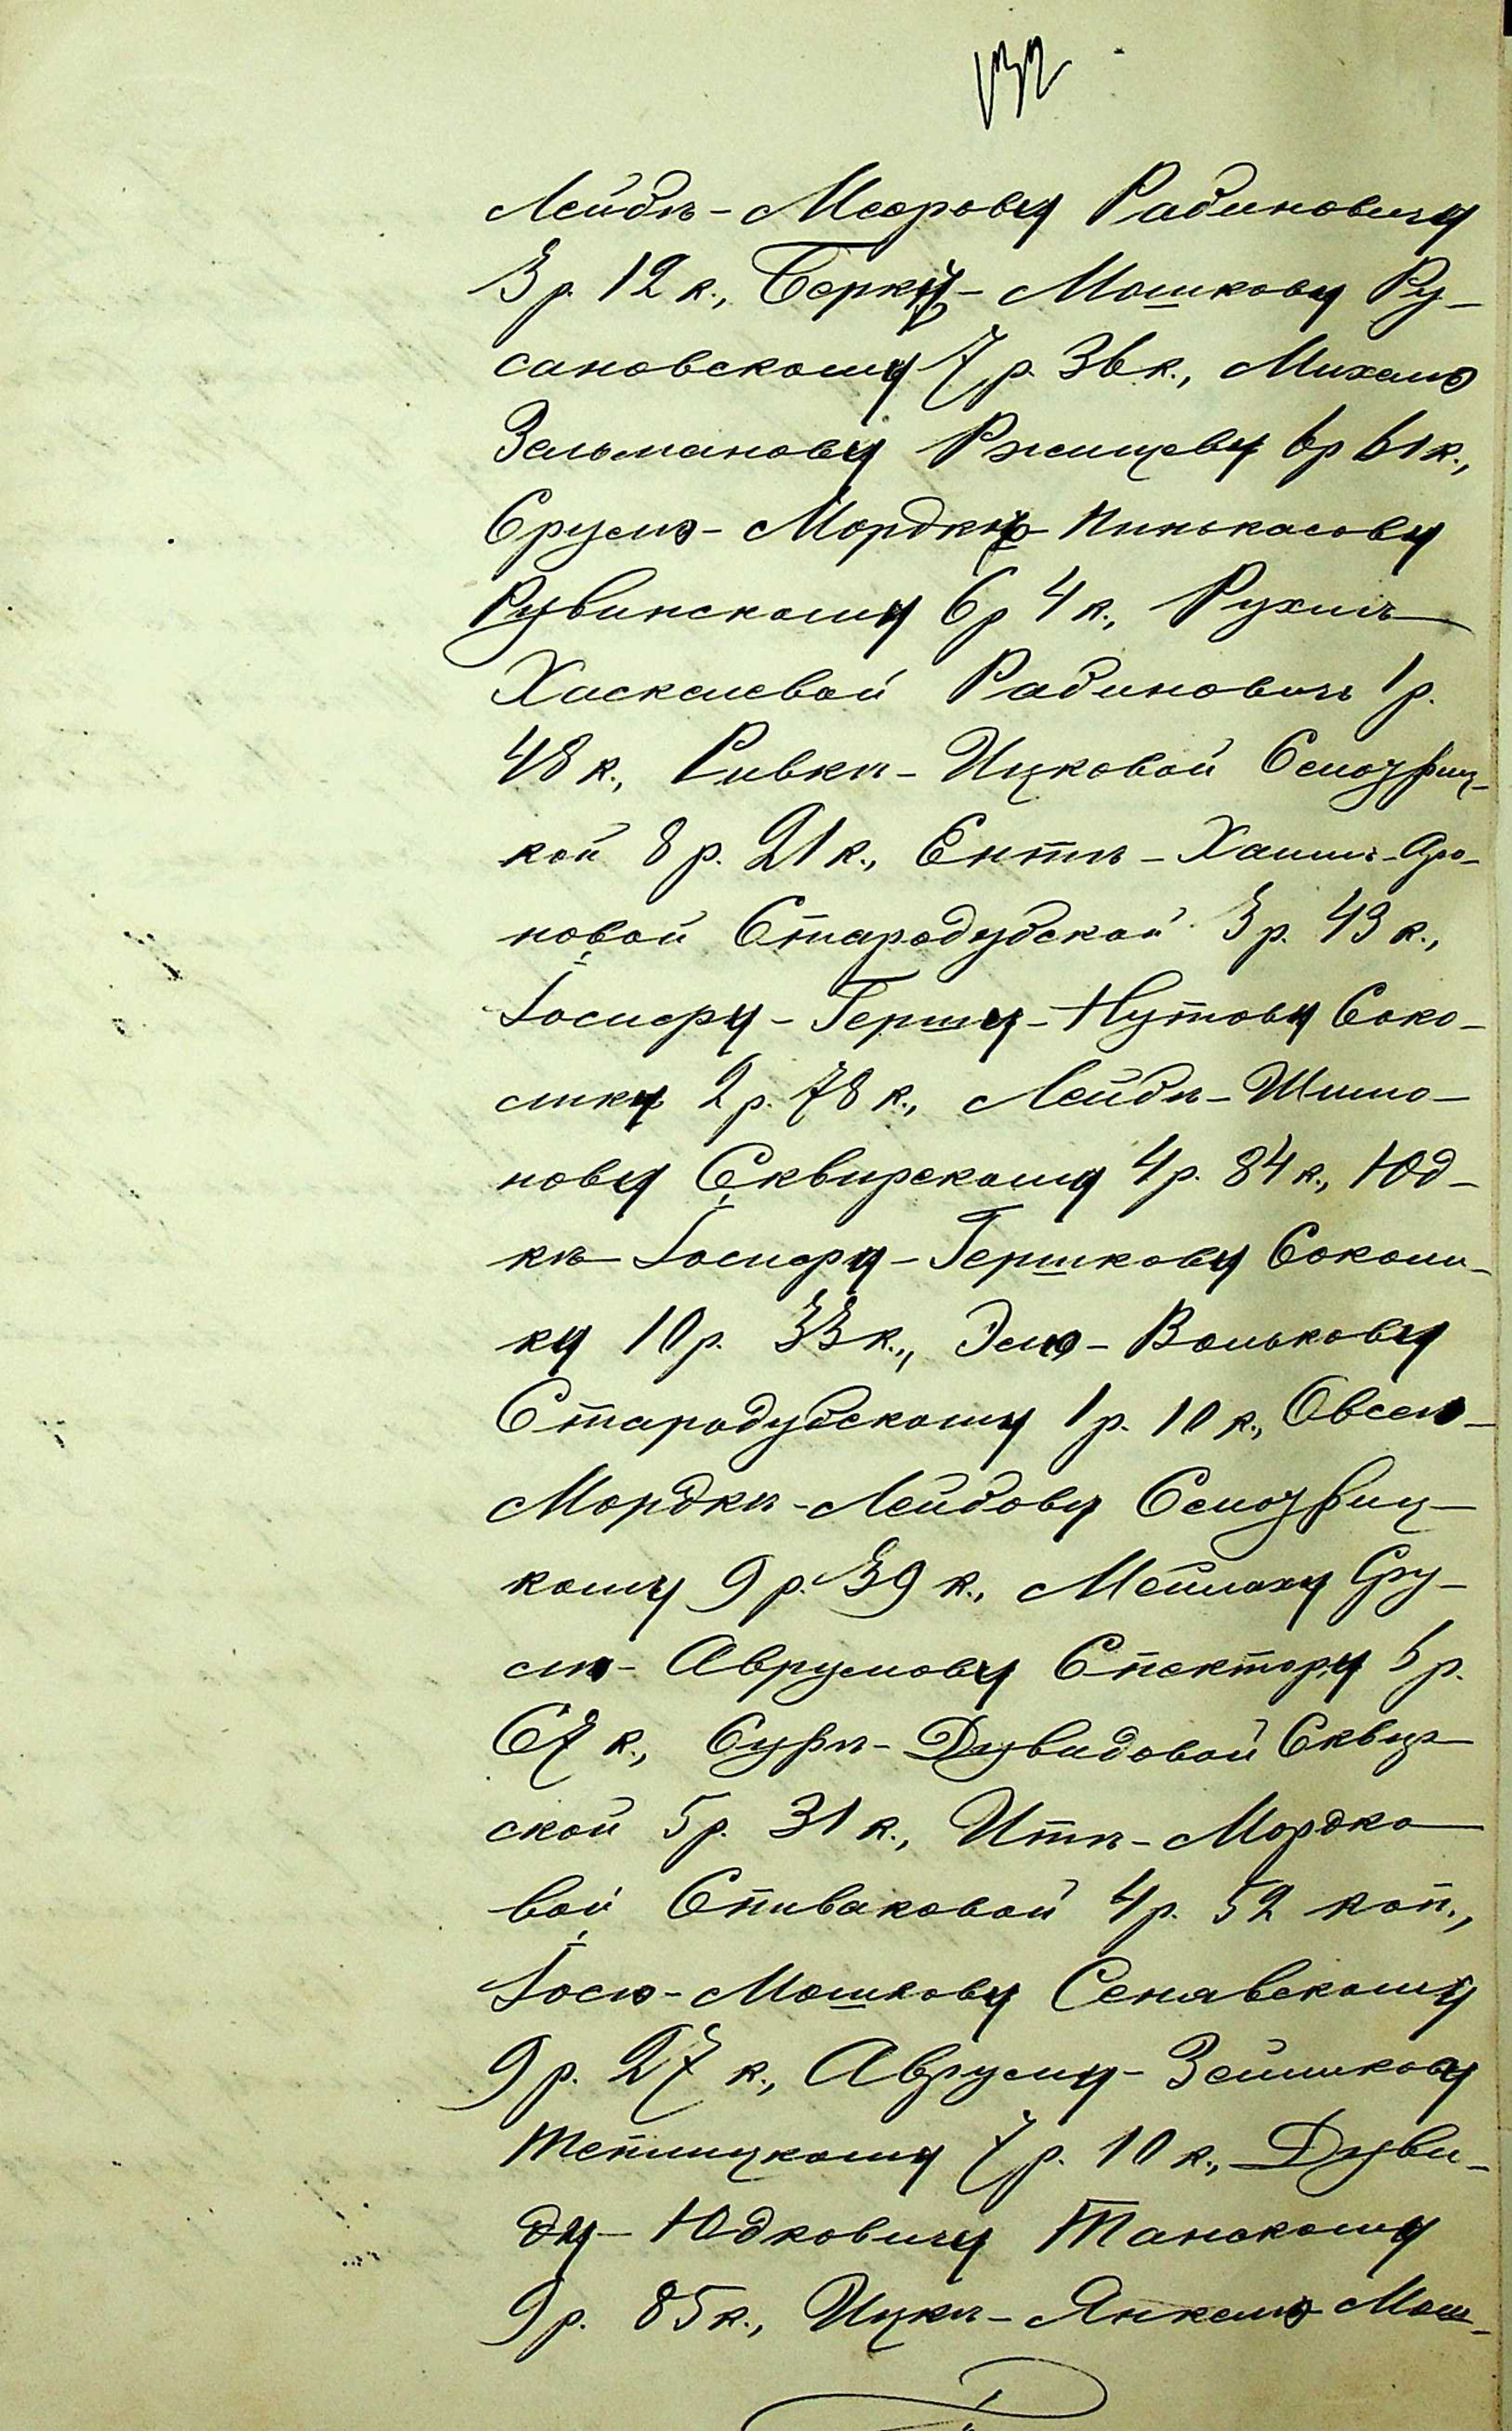 132
Лейбѣ-Меерову Рабиновичу
3 р. 12 к., Берку-Мошкову Ру-
сановскому 7 р. 36 к., Михелю
Зельманову Ржищеву 6 р 61 к.,
Срулю-Мордку Пинькасову
Рувинскому 6 р 4 к., Рухлѣ
Хаскелевой Рабиновичъ 1 р.
48 к., Ривкѣ-Ицковой Селезриц-
кой 8 р. 21 к., Ентѣ-Хаимъ-Аро-
новой Стародубской 3 р. 43 к.,
Іосифу-Гершу-Нутову Соко-
лику 2 р. 78 к., Лейбѣ-Шимо-
нову Сквирскому 4 р. 84 к., Юд-
кѣ Іосифу-Гершкову Соколи-
ку 10 р. 33 к., Элю-Волькову
Стародубскому 1 р. 10 к., Овсею-
Мордкѣ-Лейбову Селезриц-
кому 9 р. 39 к., Мейлаху Сру-
лю-Аврумову Спектору 6 р.
67 к., Сурѣ-Дувидовой Сквир-
ской 5 р. 31 к., Итѣ-Мордко-
вой Спиваковой 4 р. 52 коп.,
Іосю-Мошкову Сенявскому
9 р. 27 к., Авруму-Зейликову
Теплицкому 7 р. 10 к., Дуви-
ду-Юдковичу Танскому
9 р. 85 к., Ицкѣ-Янкелю Мош-